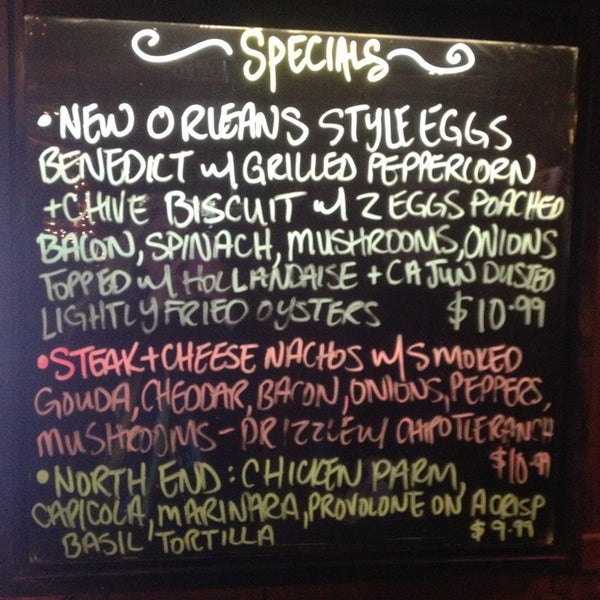 SPECIALS
• NEW ORLEANS STYLE EGGS
BENEDICT w/ GRILLED PEPPERCORN
+ CHIVE BISCUIT w/ 2 EGGS POACHED
BACON, SPINACH, MUSHROOMS, ONIONS
TOPPED w/ HOLLANDAISE + CAJUN DUSTED
LIGHTLY FRIED OYSTERS $10.99
• STEAK + CHEESE NACHOS w/ SMOKED
GOUDA, CHEDDAR, BACON, ONIONS, PEPPERS,
MUSHROOMS - DRIZZLE w/ CHIPOTLE RANCH
$10.99
• NORTH END: CHICKEN PARM,
CAPICOLA, MARINARA, PROVOLONE ON A CRISP
BASIL TORTILLA $9.99